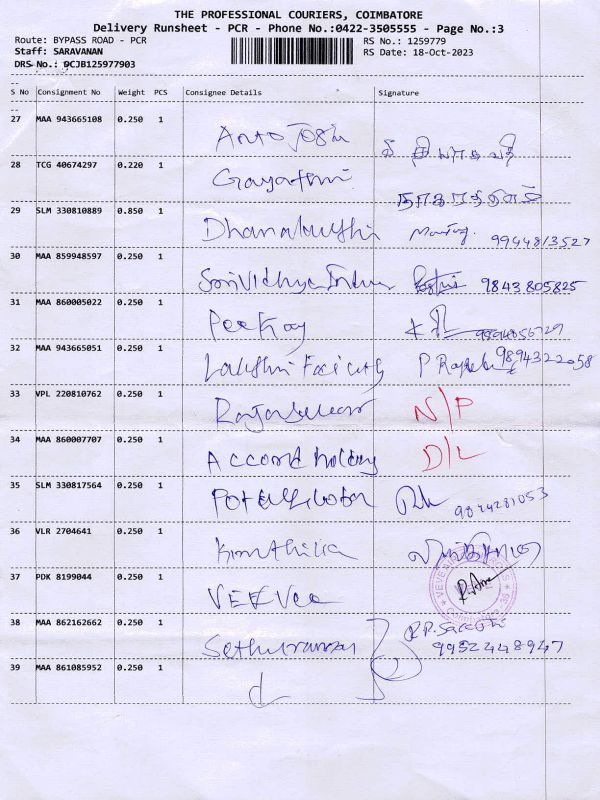 THE PROFESSIONAL COURIERS, COIMBATORE
Delivery Runsheet - PCR - Phone No.:0422-3505555 - Page No.:3
Route: BYPASS ROAD - PCR
RS No.: 1259779
Staff: SARAVANAN
RS Date: 18-Oct-2023
DRS No.: DCJB125977903
S No Consignment No Weight PCS Consignee Details Signature
27 MAA 943665108 0.250 1 Anto
28 TCG 40674297 0.220 1 Gayathri
29 SLM 330810889 0.850 1 Dhanalakshmi 9944813527
30 MAA 859948597 0.250 1 Srividhya 9843805825
31 MAA 860005022 0.250 1 PeeKay
32 MAA 943665051 0.250 1 Lakshmi 9894322058
33 VPL 220810762 0.250 1 N/P
34 MAA 860007707 0.250 1 Accord holdings D/L
35 SLM 330817564 0.250 1
36 VLR 2704641 0.250 1
37 PDK 8199044 0.250 1 VEEVee
38 MAA 862162662 0.250 1 Sethuraman 9952448947
39 MAA 861085952 0.250 1